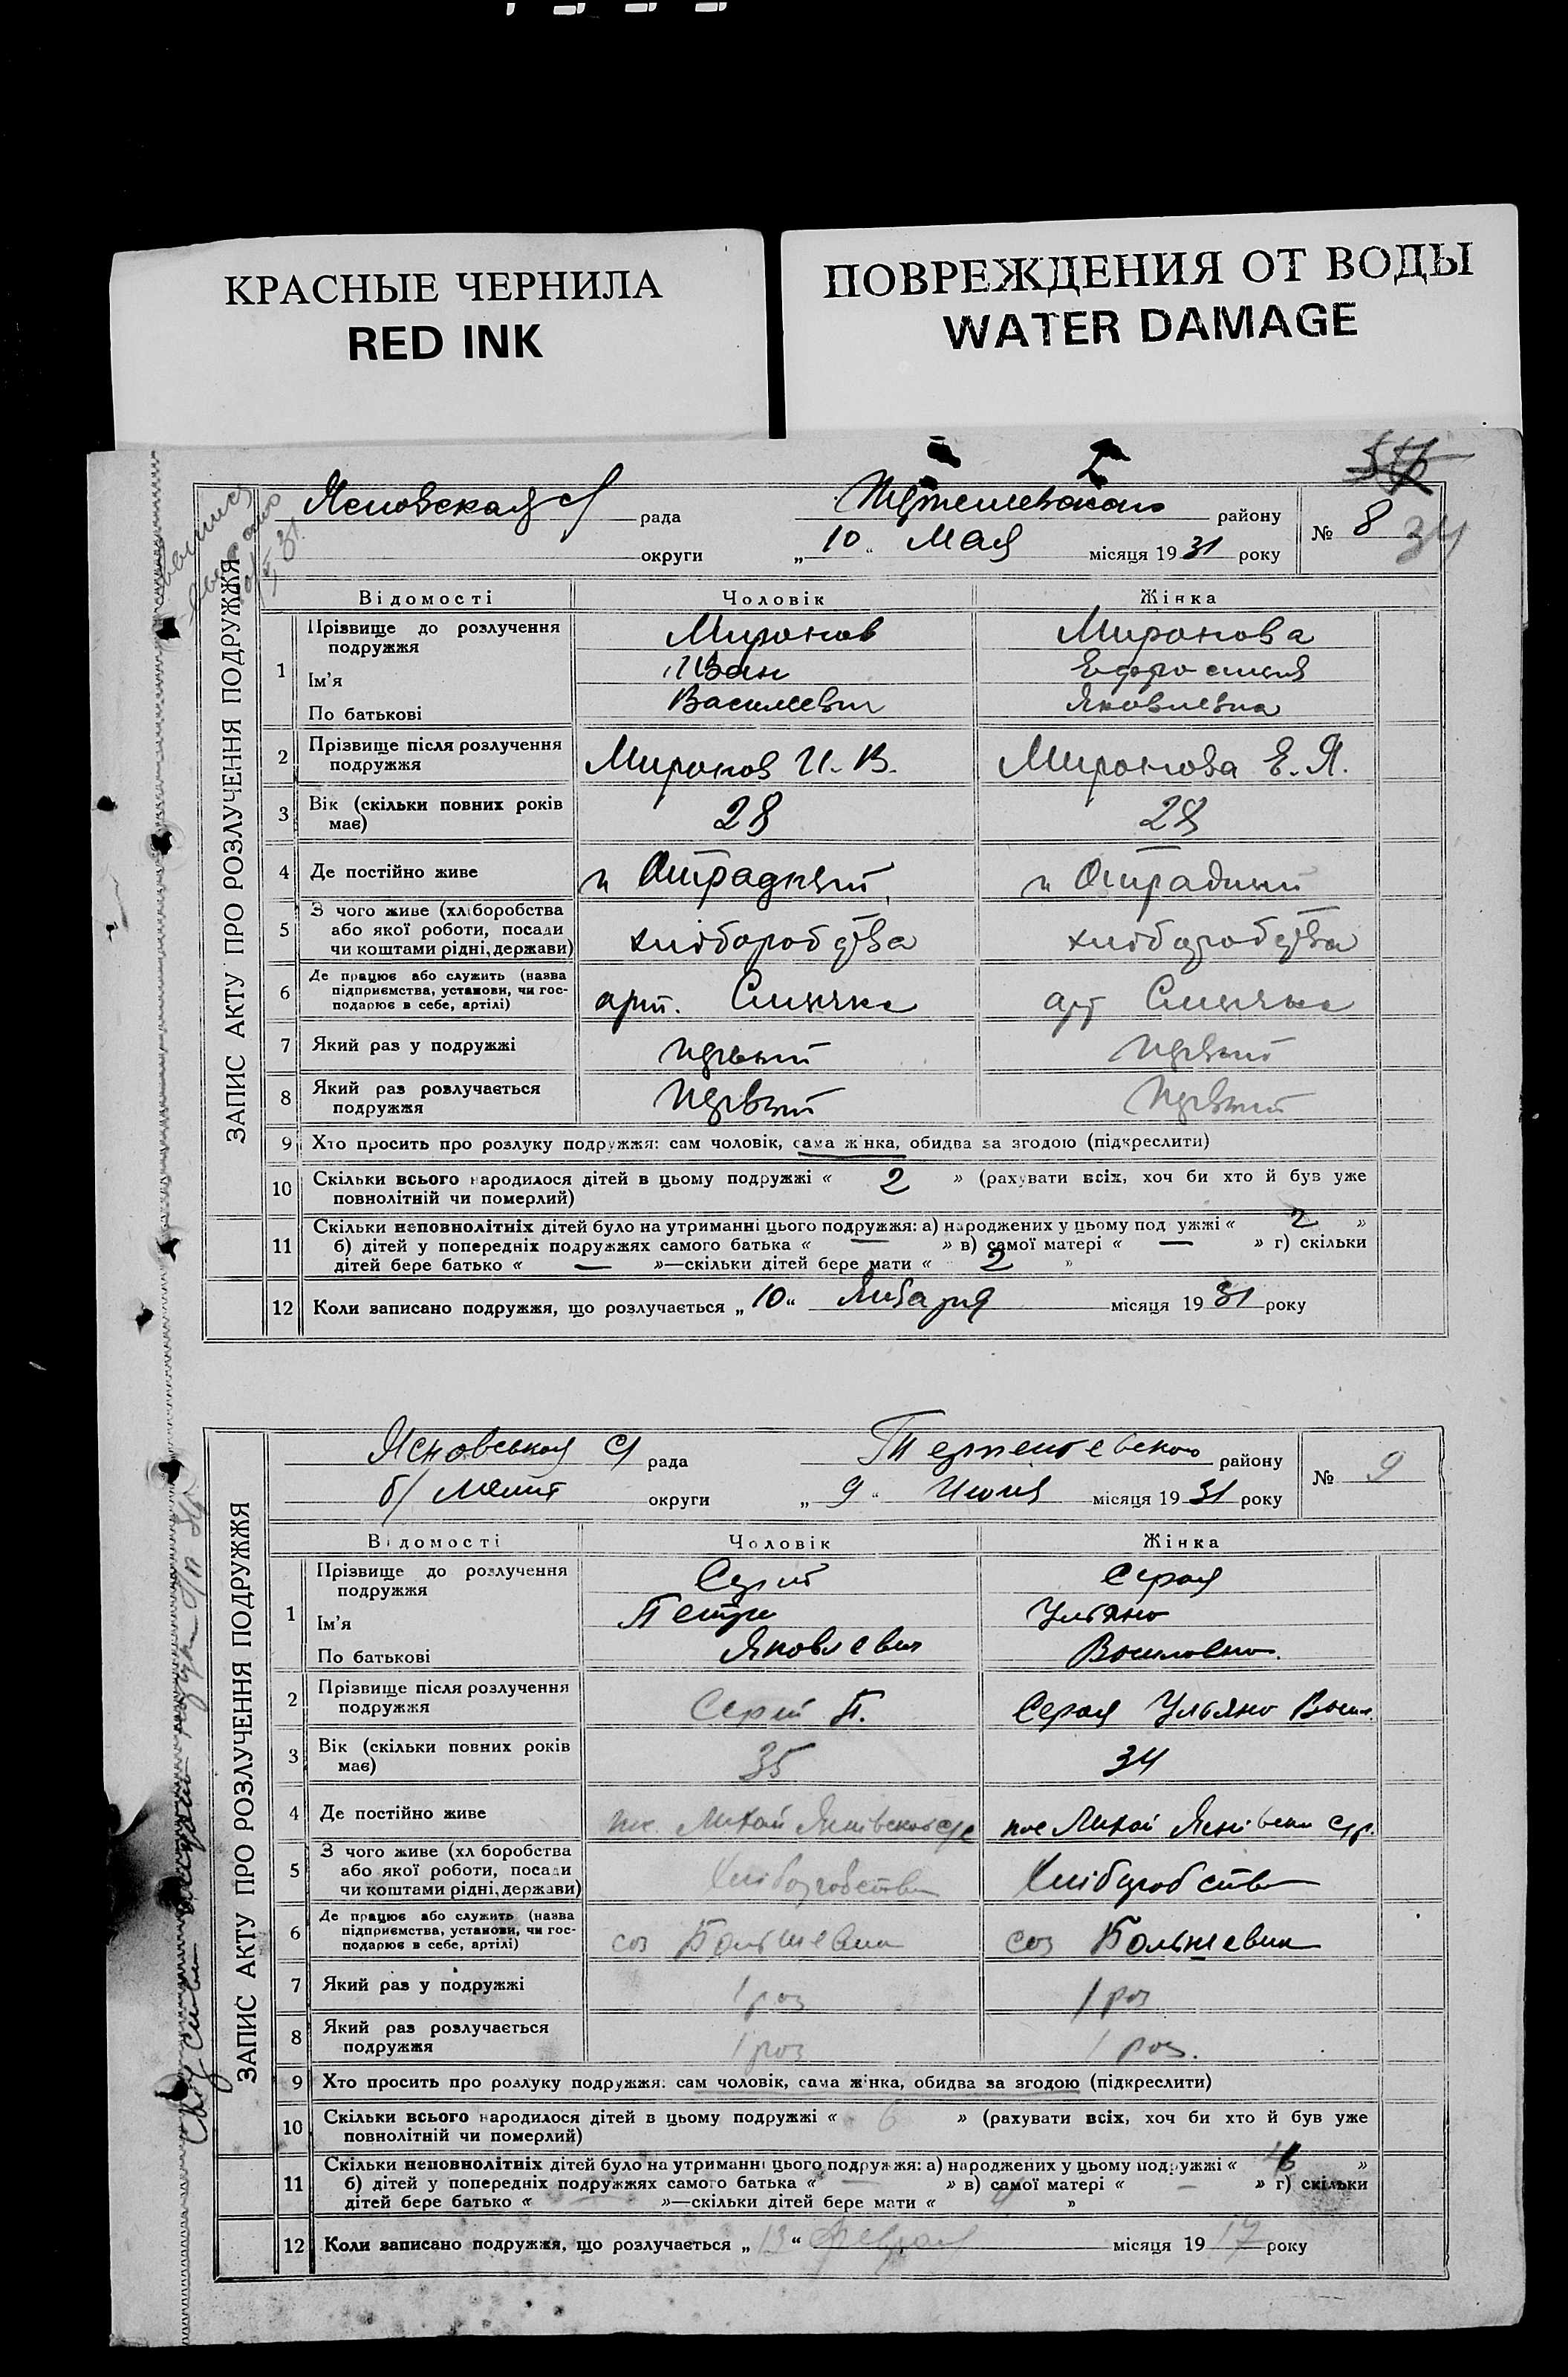 КРАСНЫЕ ЧЕРНИЛА
RED INK
ПОВРЕЖДЕНИЯ ОТ ВОДЫ
WATER DAMAGE
ЗАПИС АКТУ ПРО РОЗЛУЧЕННЯ ПОДРУЖЖЯ
Ясновская с/ рада району № 8 34
округи „ 10 “ Мая місяця 1931 року
Відомості Чоловік Жінка
1 Прізвище до розлучення подружжя Миронов Миронова
Ім’я Иван Ефросиния
По батькові Василевич Яковлевна
2 Прізвище після розлучення подружжя Миронов И. В. Миронова Е. Я.
3 Вік (скільки повних років має) 28 28
4 Де постійно живе п Отрадный п Отрадный
5 З чого живе (хліборобства або якої роботи, посади чи коштами рідні, держави) хлібороб ства хлібороб ства
6 Де працює або служить (назва підприємства, установи, чи господарює в себе, артілі) арт. арт
7 Який раз у подружжі первый первый
8 Який раз розлучається подружжя первый первый
9 Хто просить про розлуку подружжя: сам чоловік, сама жінка, обидва за згодою (підкреслити)
10 Скільки всього народилося дітей в цьому подружжі « 2 » (рахувати всіх, хоч би хто й був уже
повнолітній чи померлий)
11 Скільки неповнолітніх дітей було на утриманні цього подружжя: а) народжених у цьому подружжі « 2 »
б) дітей у попередніх подружжях самого батька « — » в) самої матері « — » г) скільки
дітей бере батько « — »—скільки дітей бере мати « 2 »
12 Коли записано подружжя, що розлучається „ 10 “ Января місяця 1931 року
ЗАПИС АКТУ ПРО РОЗЛУЧЕННЯ ПОДРУЖЖЯ
Ясновськая с/ рада району № 9
б/ Меліт округи „ 9 “ Июля місяця 1931 року
Відомості Чоловік Жінка
1 Прізвище до розлучення подружжя Серий Серая
Ім’я Петро Ульяна
По батькові Яковлевич Василовна.
2 Прізвище після розлучення подружжя Серий П. Серая Ульяна Васил.
3 Вік (скільки повних років має) 35 34
4 Де постійно живе пос
5 З чого живе (хліборобства або якої роботи, посади чи коштами рідні, держави) Хліборобства Хлібороб ства
6 Де працює або служить (назва підприємства, установи, чи господарює в себе, артілі) соз Большевик соз Большевик
7 Який раз у подружжі 1 раз 1 раз
8 Який раз розлучається подружжя 1 раз 1 раз.
9 Хто просить про розлуку подружжя: сам чоловік, сама жінка, обидва за згодою (підкреслити)
10 Скільки всього народилося дітей в цьому подружжі « 6 » (рахувати всіх, хоч би хто й був уже
повнолітній чи померлий)
11 Скільки неповнолітніх дітей було на утриманні цього подружжя: а) народжених у цьому подружжі « »
б) дітей у попередніх подружжях самого батька « — » в) самої матері « — » г) скільки
дітей бере батько « »—скільки дітей бере мати « »
12 Коли записано подружжя, що розлучається „ 13 “ Февраля місяця 1917 року